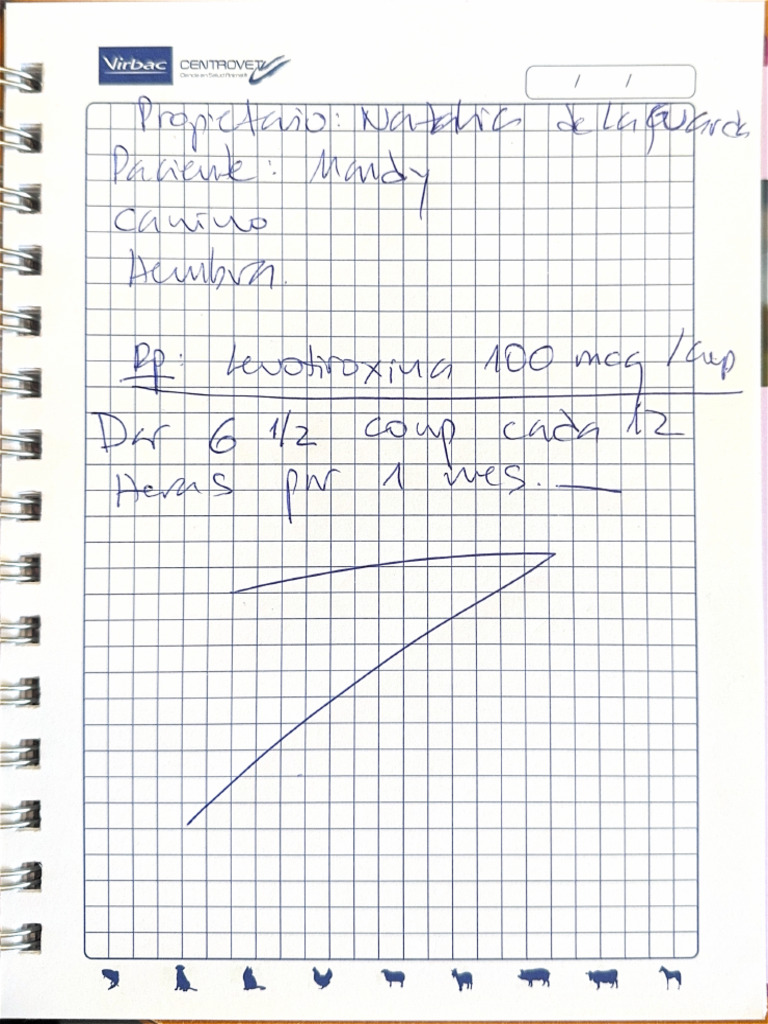 Virbac CENTROVET
/ /
Propietario: Natalia de la Guarda
Paciente: Mandy
Canino
Hembra.
Rp: Levotiroxina 100 mcg /cup
Dar 6 1/2 comp cada 12
Horas por 1 mes.